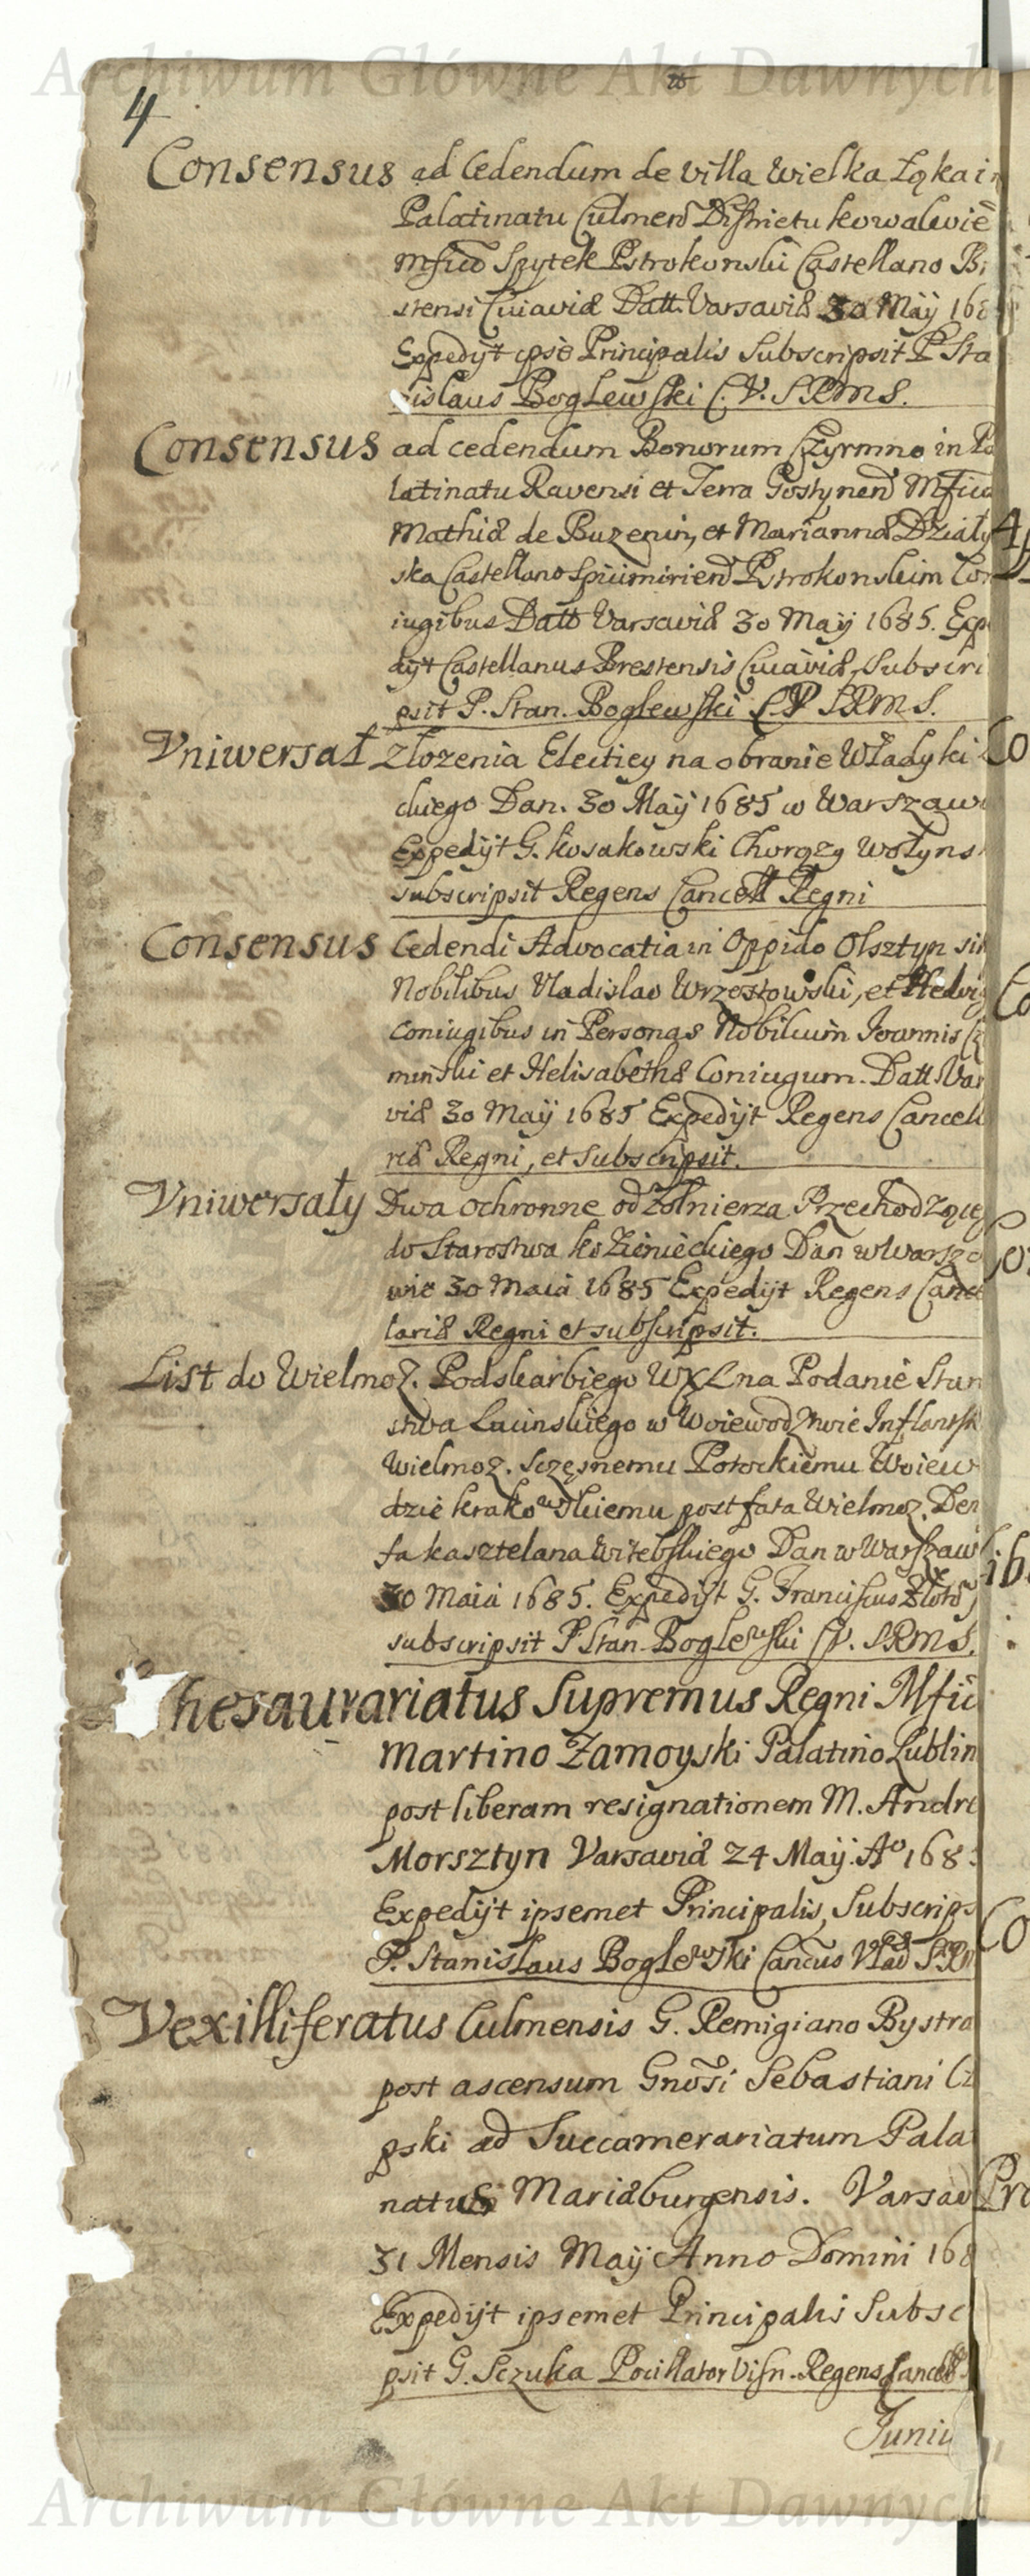 Archiwum Główne Akt Dawnych
4
Consensus ad Cedendum de Villa Wielka Łąka in
Palatinatu Culmen Districtu Kowalevie
Mfico Spytek Pstrokonski Castellano Br
stensi Cuiaviæ Datt. Varsaviæ 30 Maÿ 168
Expedÿt ipse Principalis Subscripsit P Sta
nislaus Boglewski C. V. SRMS.
Consensus ad cedendum Bonorum Czyrmno in Pa
latinatu Ravensi et Terra Gostynen Mfico
Mathiæ de Buzenin, et Mariannæ Działy
ska Castellano Spicimirien Pstrokonskim Con
iugibus Datt Varsaviæ 30 Maÿ 1685. Expe
dÿt Castellanus Brestensis Cuiaviæ, Subscri
psit P. Stan. Boglewski C.V SRMS.
Vniwersał Zlozenia Electiey na obranie Władyki
ckiego Dan. 30 Maÿ 1685 w Warszawi
Expedÿt G. Kosakowski Chorązy Wołyns
subscripsit Regens Cancell Regni
Consensus Cedendi Advocatia in Oppido Olsztyn
Nobilibus Vladislao Wrzesżowski, et Hedvig
Coniugibus in Personas Nobilium Joannis
minski et Helisabethæ Coniugum. Datt. Var
viæ 30 Maÿ 1685 Expedÿt Regens Cancell
riæ Regni, et Subscripsit.
Vniwersały Dwa Ochronne od Zołnierza Przechodzące
do Starostwa Kozienieckiego Dan w Warsza
wie 30 Maia 1685 Expedijt Regens Cance
lariæ Regni et subscripsit.
List do Wielmoz. Podskarbiego WXL na Podanie Star
stwa Lucinskiego w Woiewodztwie Inflantsk
Wielmoz. Sczęsnemu Potockiemu Woiew
dzie Krakowskiemu post fata Wielmoz. Den
fa kasztelana Witebskiego Dan w Warszaw
30 Maia 1685. Expedÿt G. Franciscus
subscripsit P. Stan. Boglewski CV. SRMS.
hesaurariatus Supremus Regni Mfic
Martino Zamoyski Palatino Lublin
post liberam resignationem M. Andre
Morsztyn Varsaviæ 24 Maÿ. Aº 168
Expedÿt ipsemet Principalis, Subscrips
P. Stanislaus Boglewski Cancus Vlad SRM
Vexilliferatus Culmensis G. Remigiano Bystra
post ascensum Gnosi Sebastiani Cz
pski ad Succamerariatum Pala
natus Mariæburgensis. Varsav
31 Mensis Maÿ Anno Domini 168
Expedÿt ipsemet Principalis Subsc
psit G. Sczuka Pocillator Visn. Regens Cancell
Juniu
Archiwum Główne Akt Dawnych